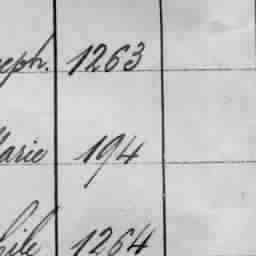 seph. 1263
Marie 194
hile 1264